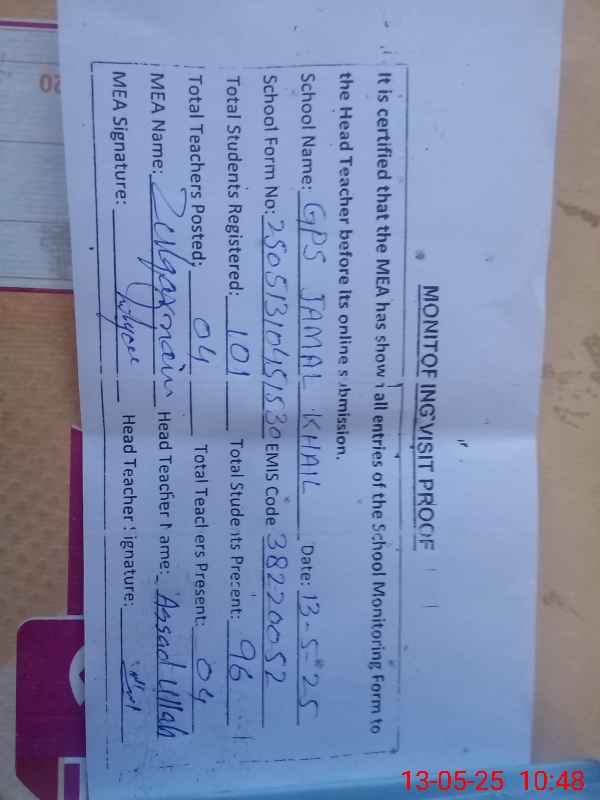 MONITORING VISIT PROOF
It is certified that the MEA has shown all entries of the School Monitoring Form to
the Head Teacher before its online submission.
School Name: GPS JAMAL KHAIL Date: 13-5-25
School Form No: 25051310451530 EMIS Code 38220052
Total Students Registered: 101 Total Students Present: 96
Total Teachers Posted: 04 Total Teachers Present: 04
MEA Name: Zulqarnain Head Teacher Name: Assad Ullah
MEA Signature: Head Teacher Signature:
20
13-05-25 10:48